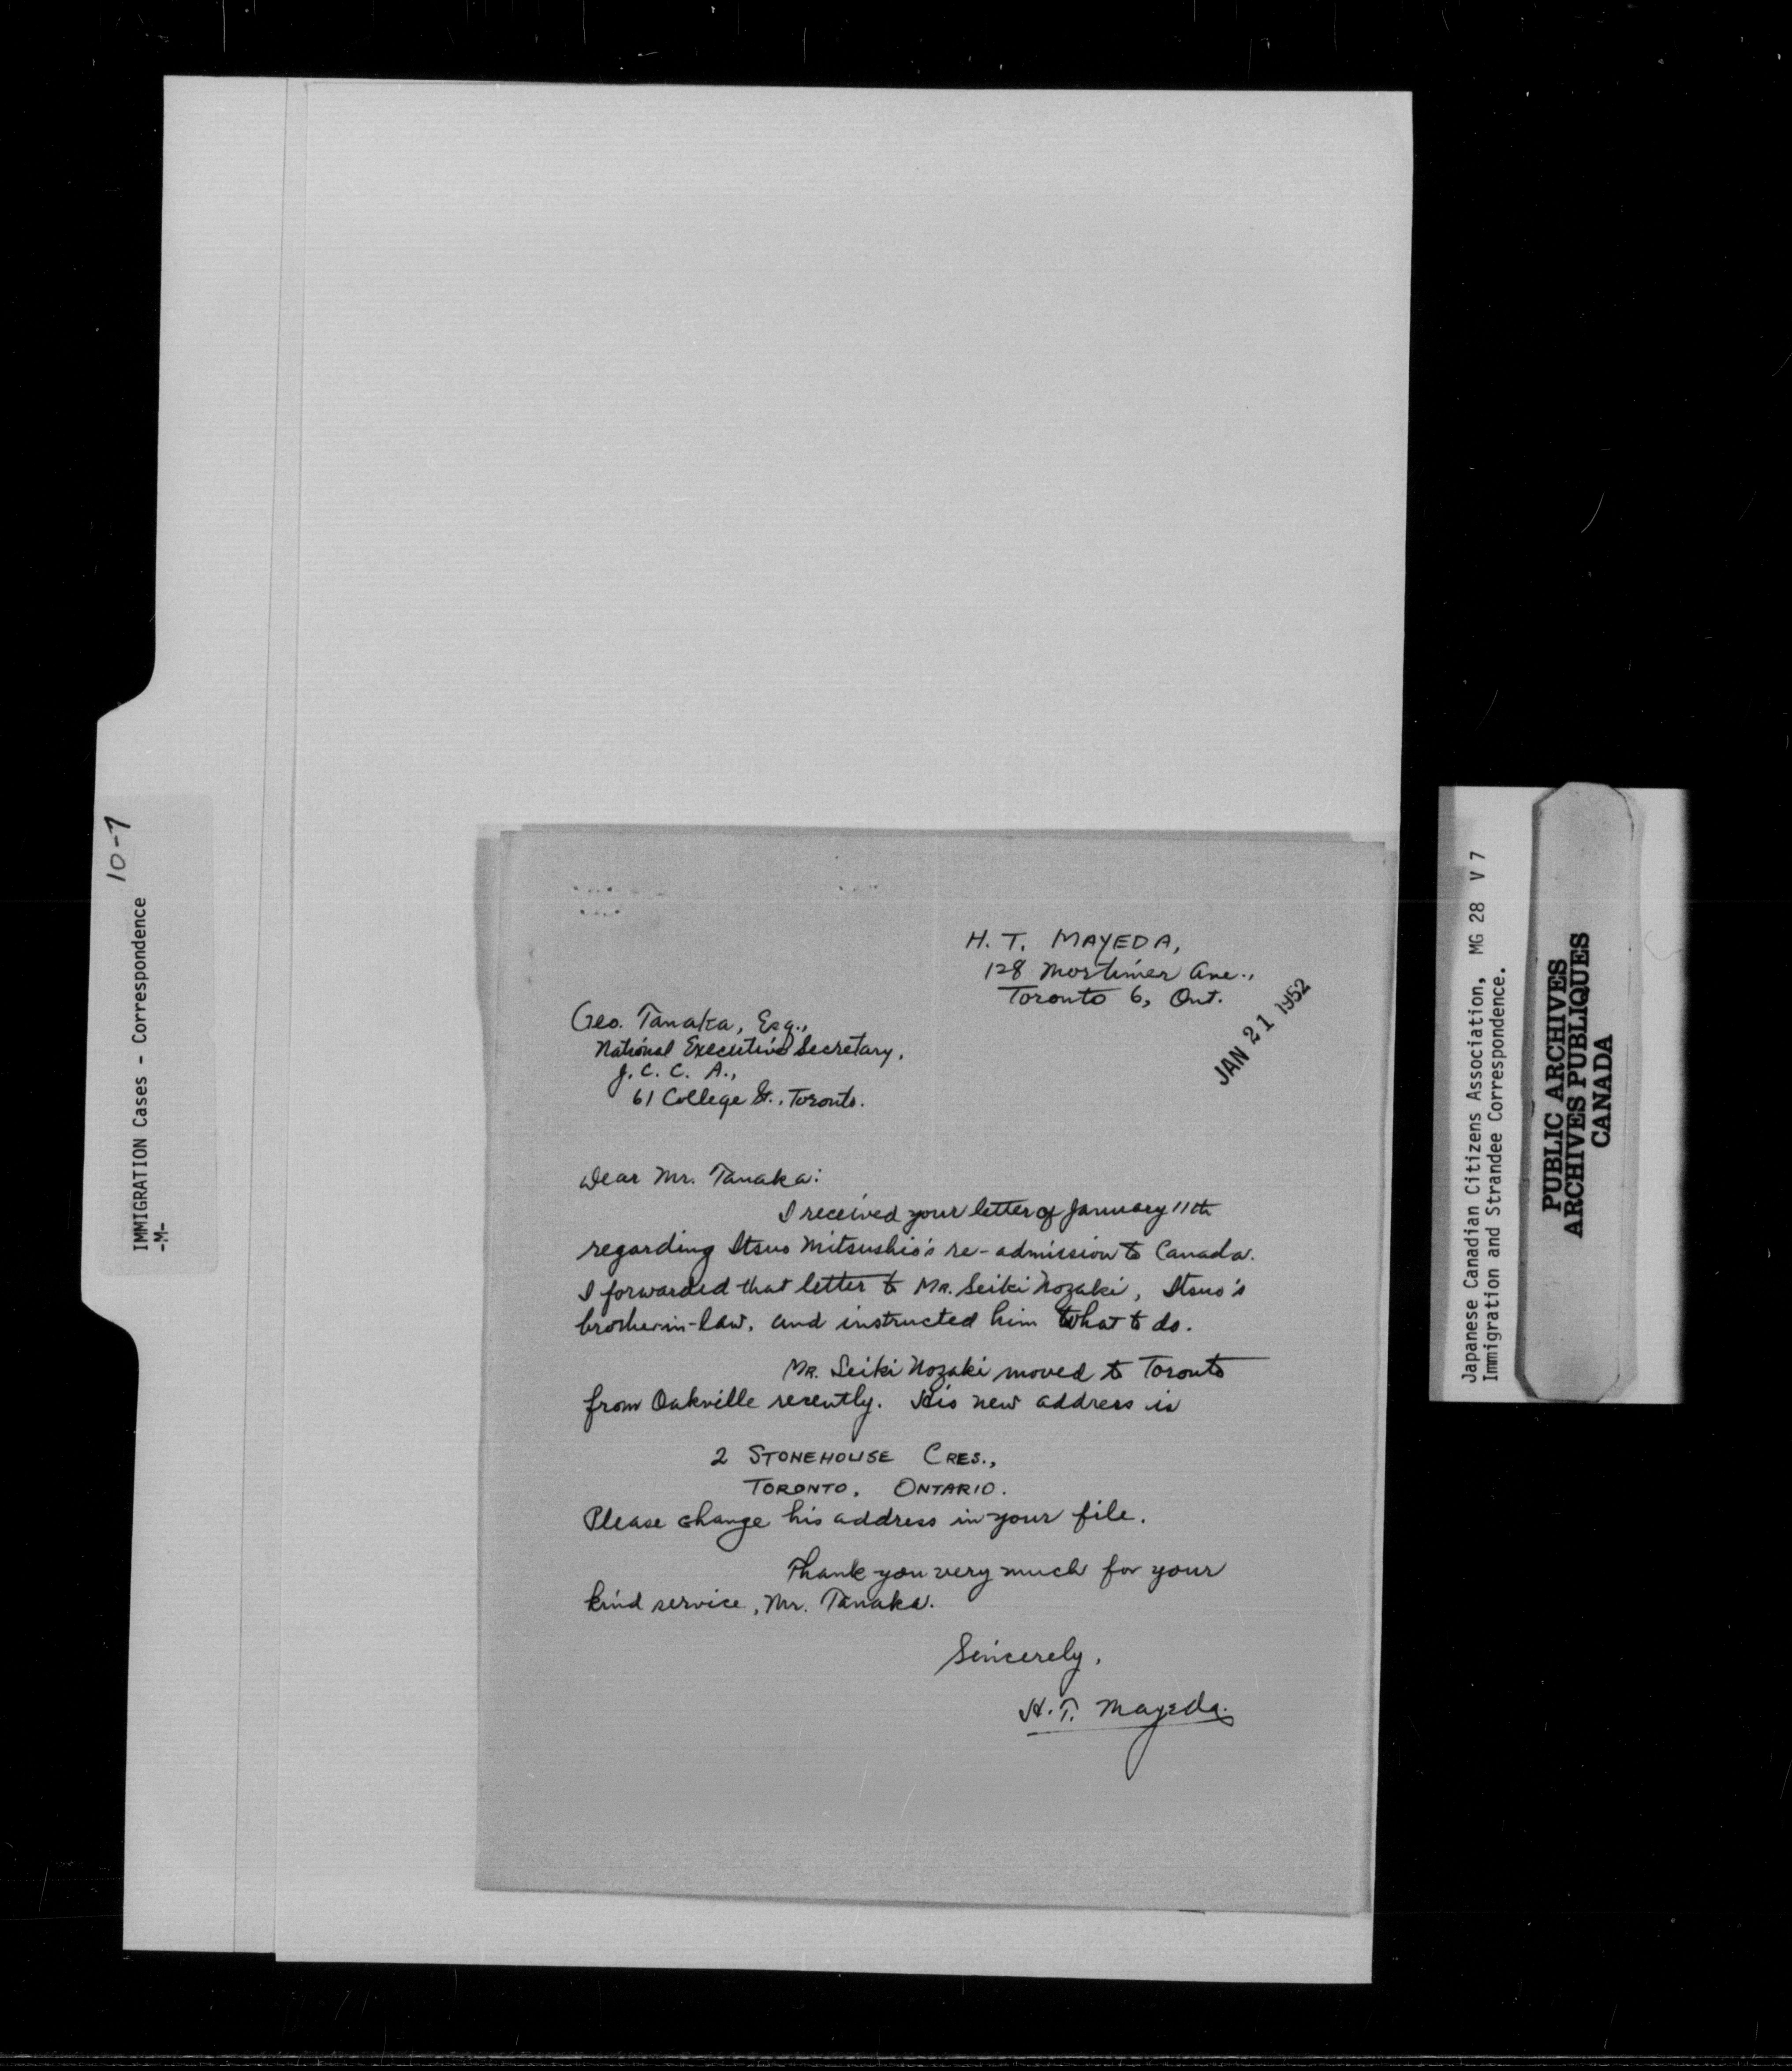 IMMIGRATION Cases - Correspondence 10-7
-M-
H. T. MAYEDA,
128 Mortimer Ave.,
Toronto 6, Ont.
JAN 21 1952
Geo. Tanaka, Esq.,
National Executive Secretary,
J. C. C. A.,
61 College St., Toronto.
Dear Mr. Tanaka:
I received your letter of January 11th
regarding Itsuo Mitsushio's re-admission to Canada.
I forwarded that letter to MR. Seiki Nozaki, Itsuo's
brother-in-law, and instructed him what to do.
MR. Seiki Nozaki moved to Toronto
from Oakville recently. His new address is
2 STONEHOUSE CRES.,
TORONTO, ONTARIO.
Please change his address in your file.
Thank you very much for your
kind service, Mr. Tanaka.
Sincerely,
H. T. Mayeda.
Japanese Canadian Citizens Association, MG 28 V 7
Immigration and Strandee Correspondence.
PUBLIC ARCHIVES
ARCHIVES PUBLIQUES
CANADA